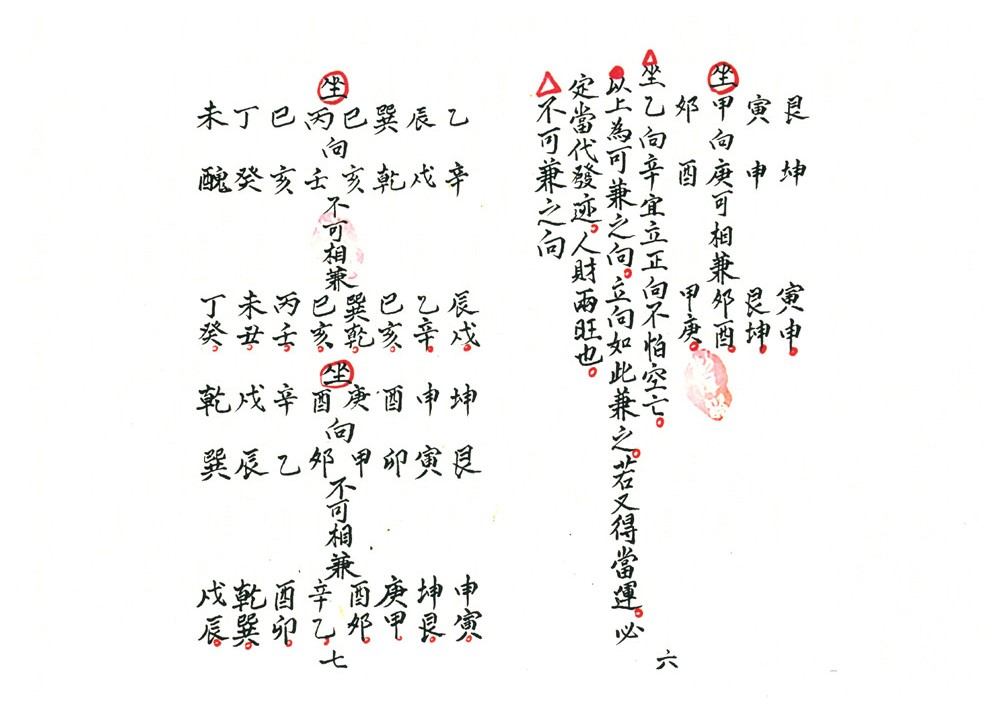 艮坤寅申
寅申艮坤
坐甲向庚可相兼卯酉
卯酉甲庚
坐乙向辛宜立正向不怕空亡。
以上為可兼之向。立向如此兼之。若又得當運。必
定當代發迹。人財兩旺也。
不可兼之向
六
乙辛辰戌
辰戌乙辛
巽乾巳亥
巳亥巽乾
坐丙向壬不可相兼巳亥
巳亥丙壬
丁癸未丑
未醜丁癸
坤艮申寅
申寅坤艮
酉卯庚甲
庚甲酉卯
坐酉向卯不可相兼辛乙
辛乙酉卯
戌辰乾巽
乾巽戌辰
七